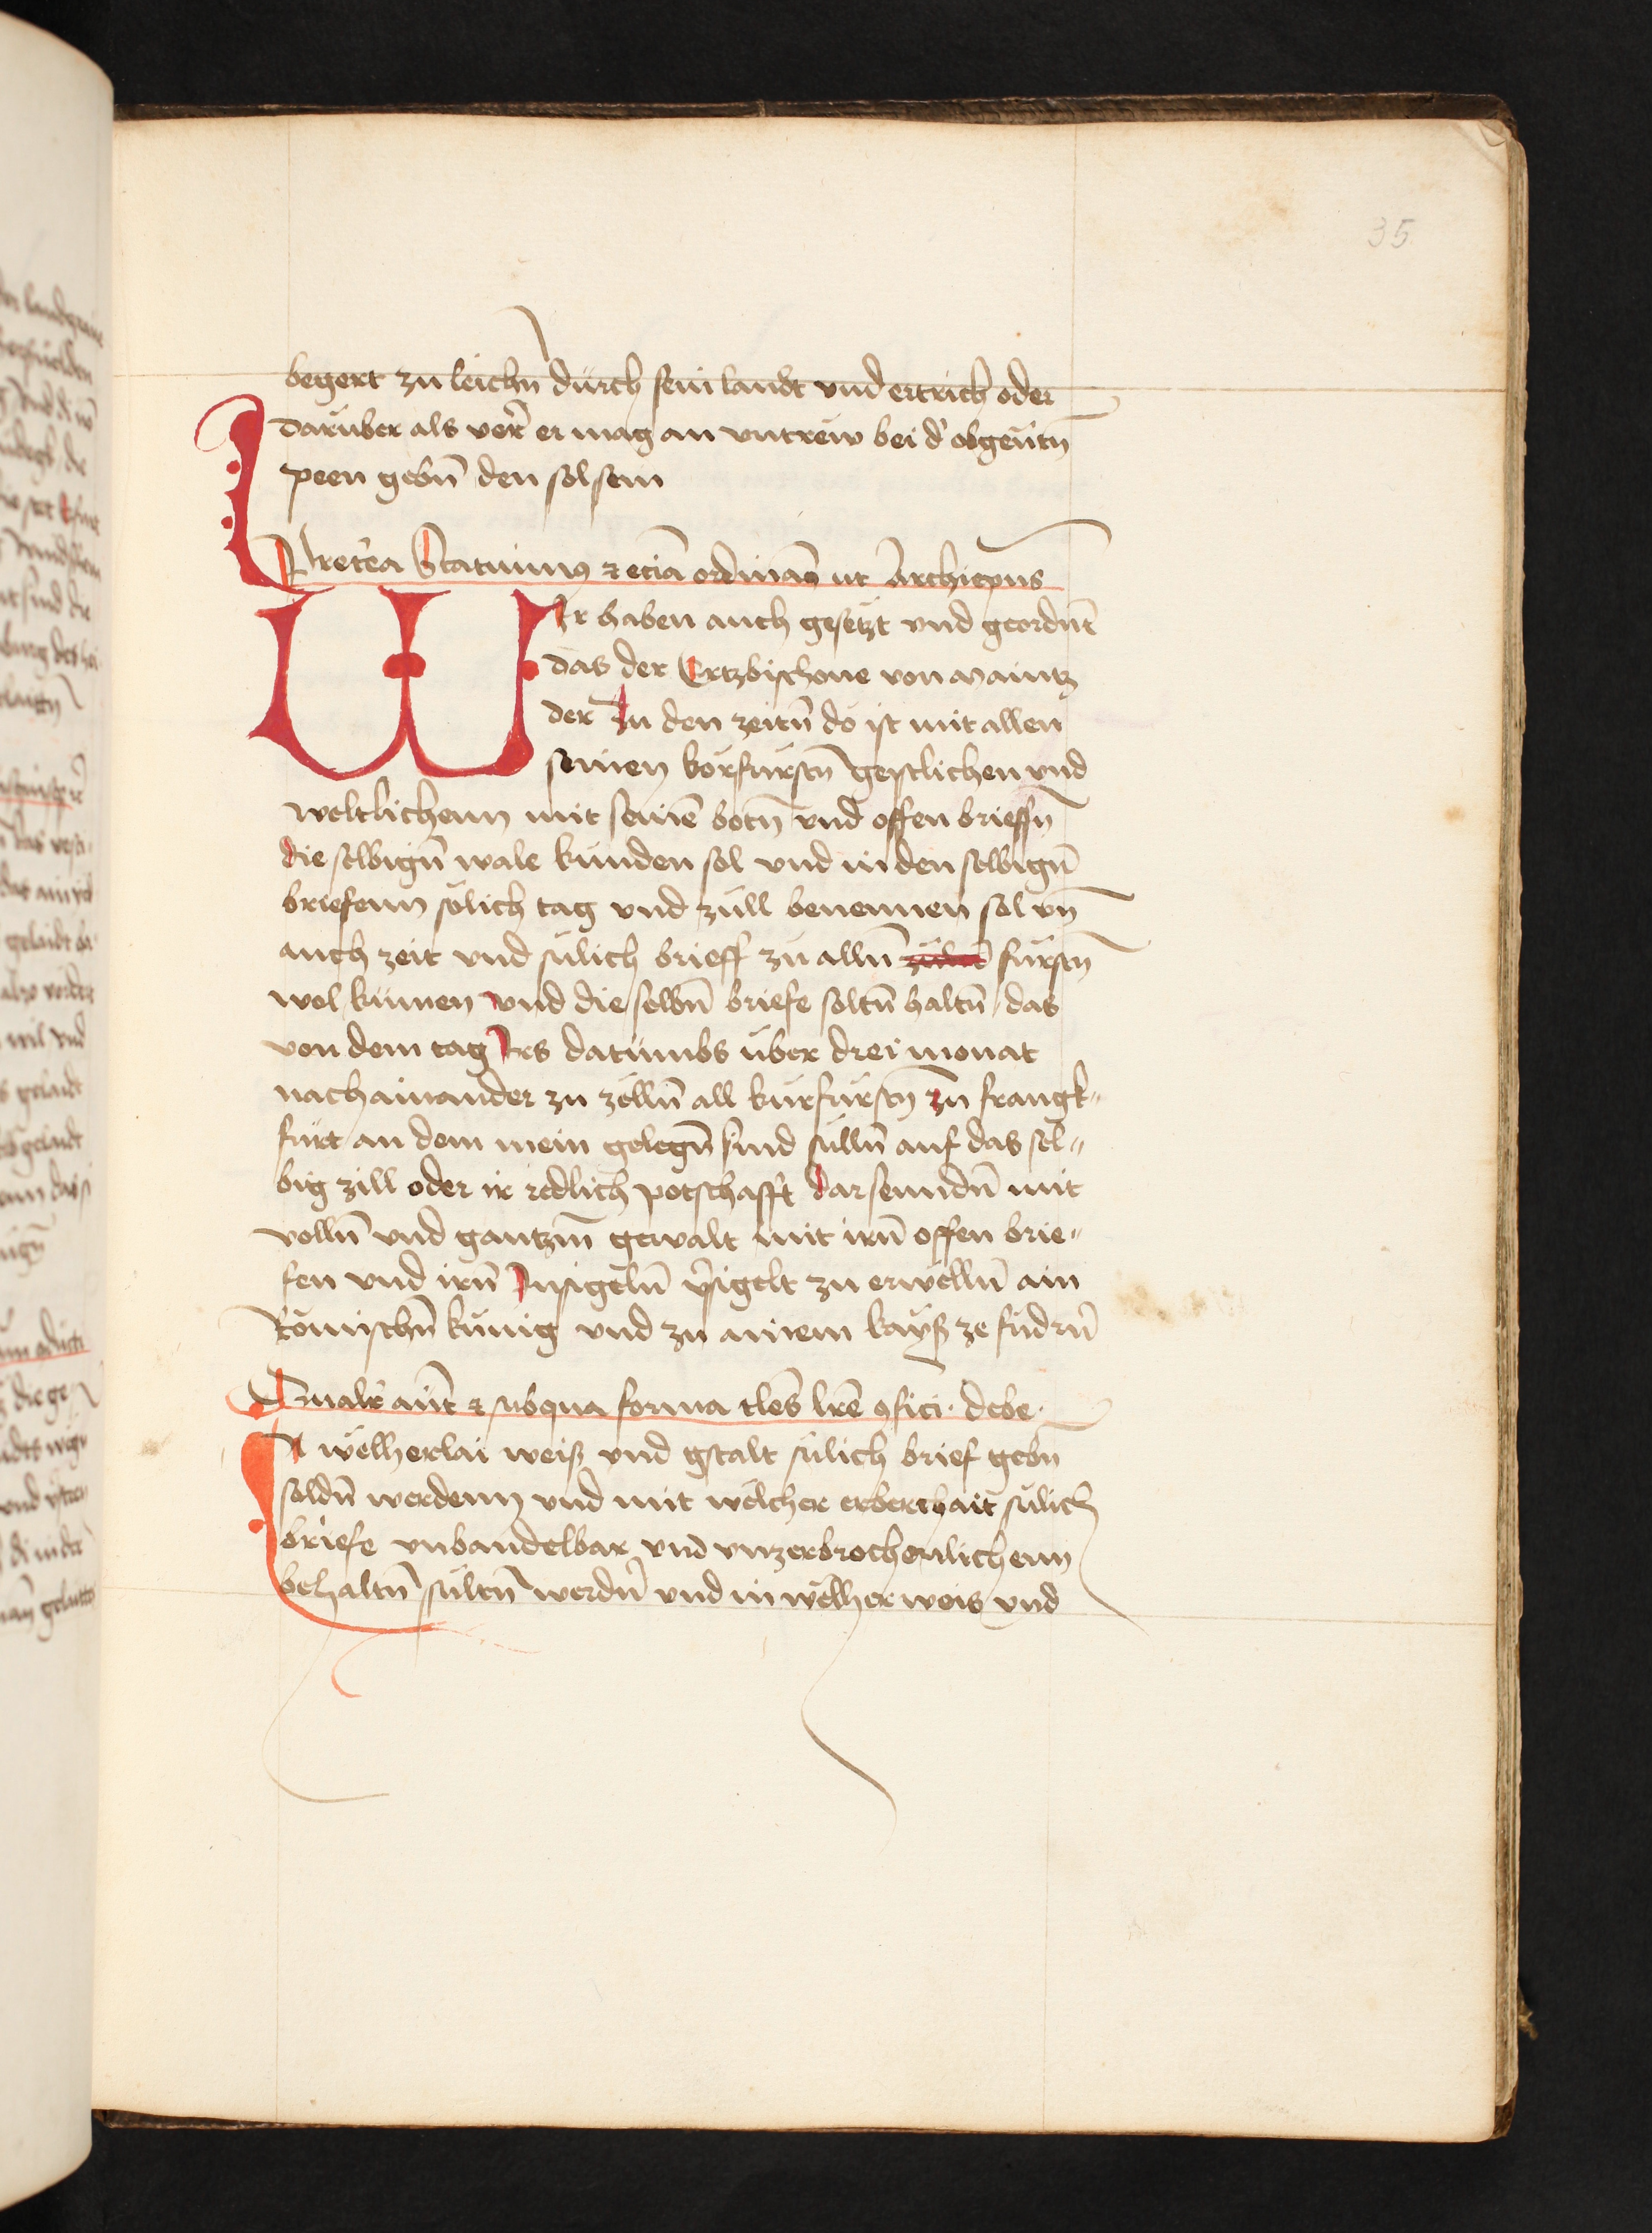 35
begert zu leichn̄ durch sein landt vnd ertrich oder
daruber als verr̄ er mag an vntrew bei d' obgeūtn̄
peen gebn̄ den sol sein
Pretēa Statuimꝯ ⁊ eciā ordinam̄ ut Archiep̄us
WIr haben auch gesetzt vnd geordnt̄
das der Ertzbischoue von maintz
der Zu den zeitn̄ do ist mit allen
seinen korfurstn̄ geistlichen vnd
weltlichenn mit seinē botn̄ vnd offen brieffn̄
die selbign̄ wale kunden sol vnd in den selbign̄
briefenn solich tag vnd zill benennen sol vn̄
auch zeit vnd sulich brieff zu alln̄ furstn̄
wol kumen vnd die selbn̄ briefe soltn̄ haltn̄ das
von dem tag Irs datumbs uber drei monat
nach ainander zu zelln̄ all kurfurstn̄ zu frangk-
furt an dem mein gelegn̄ sind sulln̄ auf das sel-
big zill oder ir redlich potschafft dar senndn̄ mit
volln̄ vnd gantzm̄ gewalt mit irn̄ offen brie-
fen vnd irn̄ Insigeln̄ v̄sigelt zu erwelln̄ ain
Romischn̄ kunig vnd zu ainem kayß ze fudrn̄
Qualit̄ aūt ⁊ sub qua forma tles̄ lrē ꝯfici debe
IN welherlai weiß vnd gstalt sulich brief gebn
soldn̄ werdenn vnd mit welcher erberchait sulich
briefe vnbandelbar vnd vnzerbrochenlichenn
behaltn̄ sultn̄ werdn̄ vnd in welher weis vnd